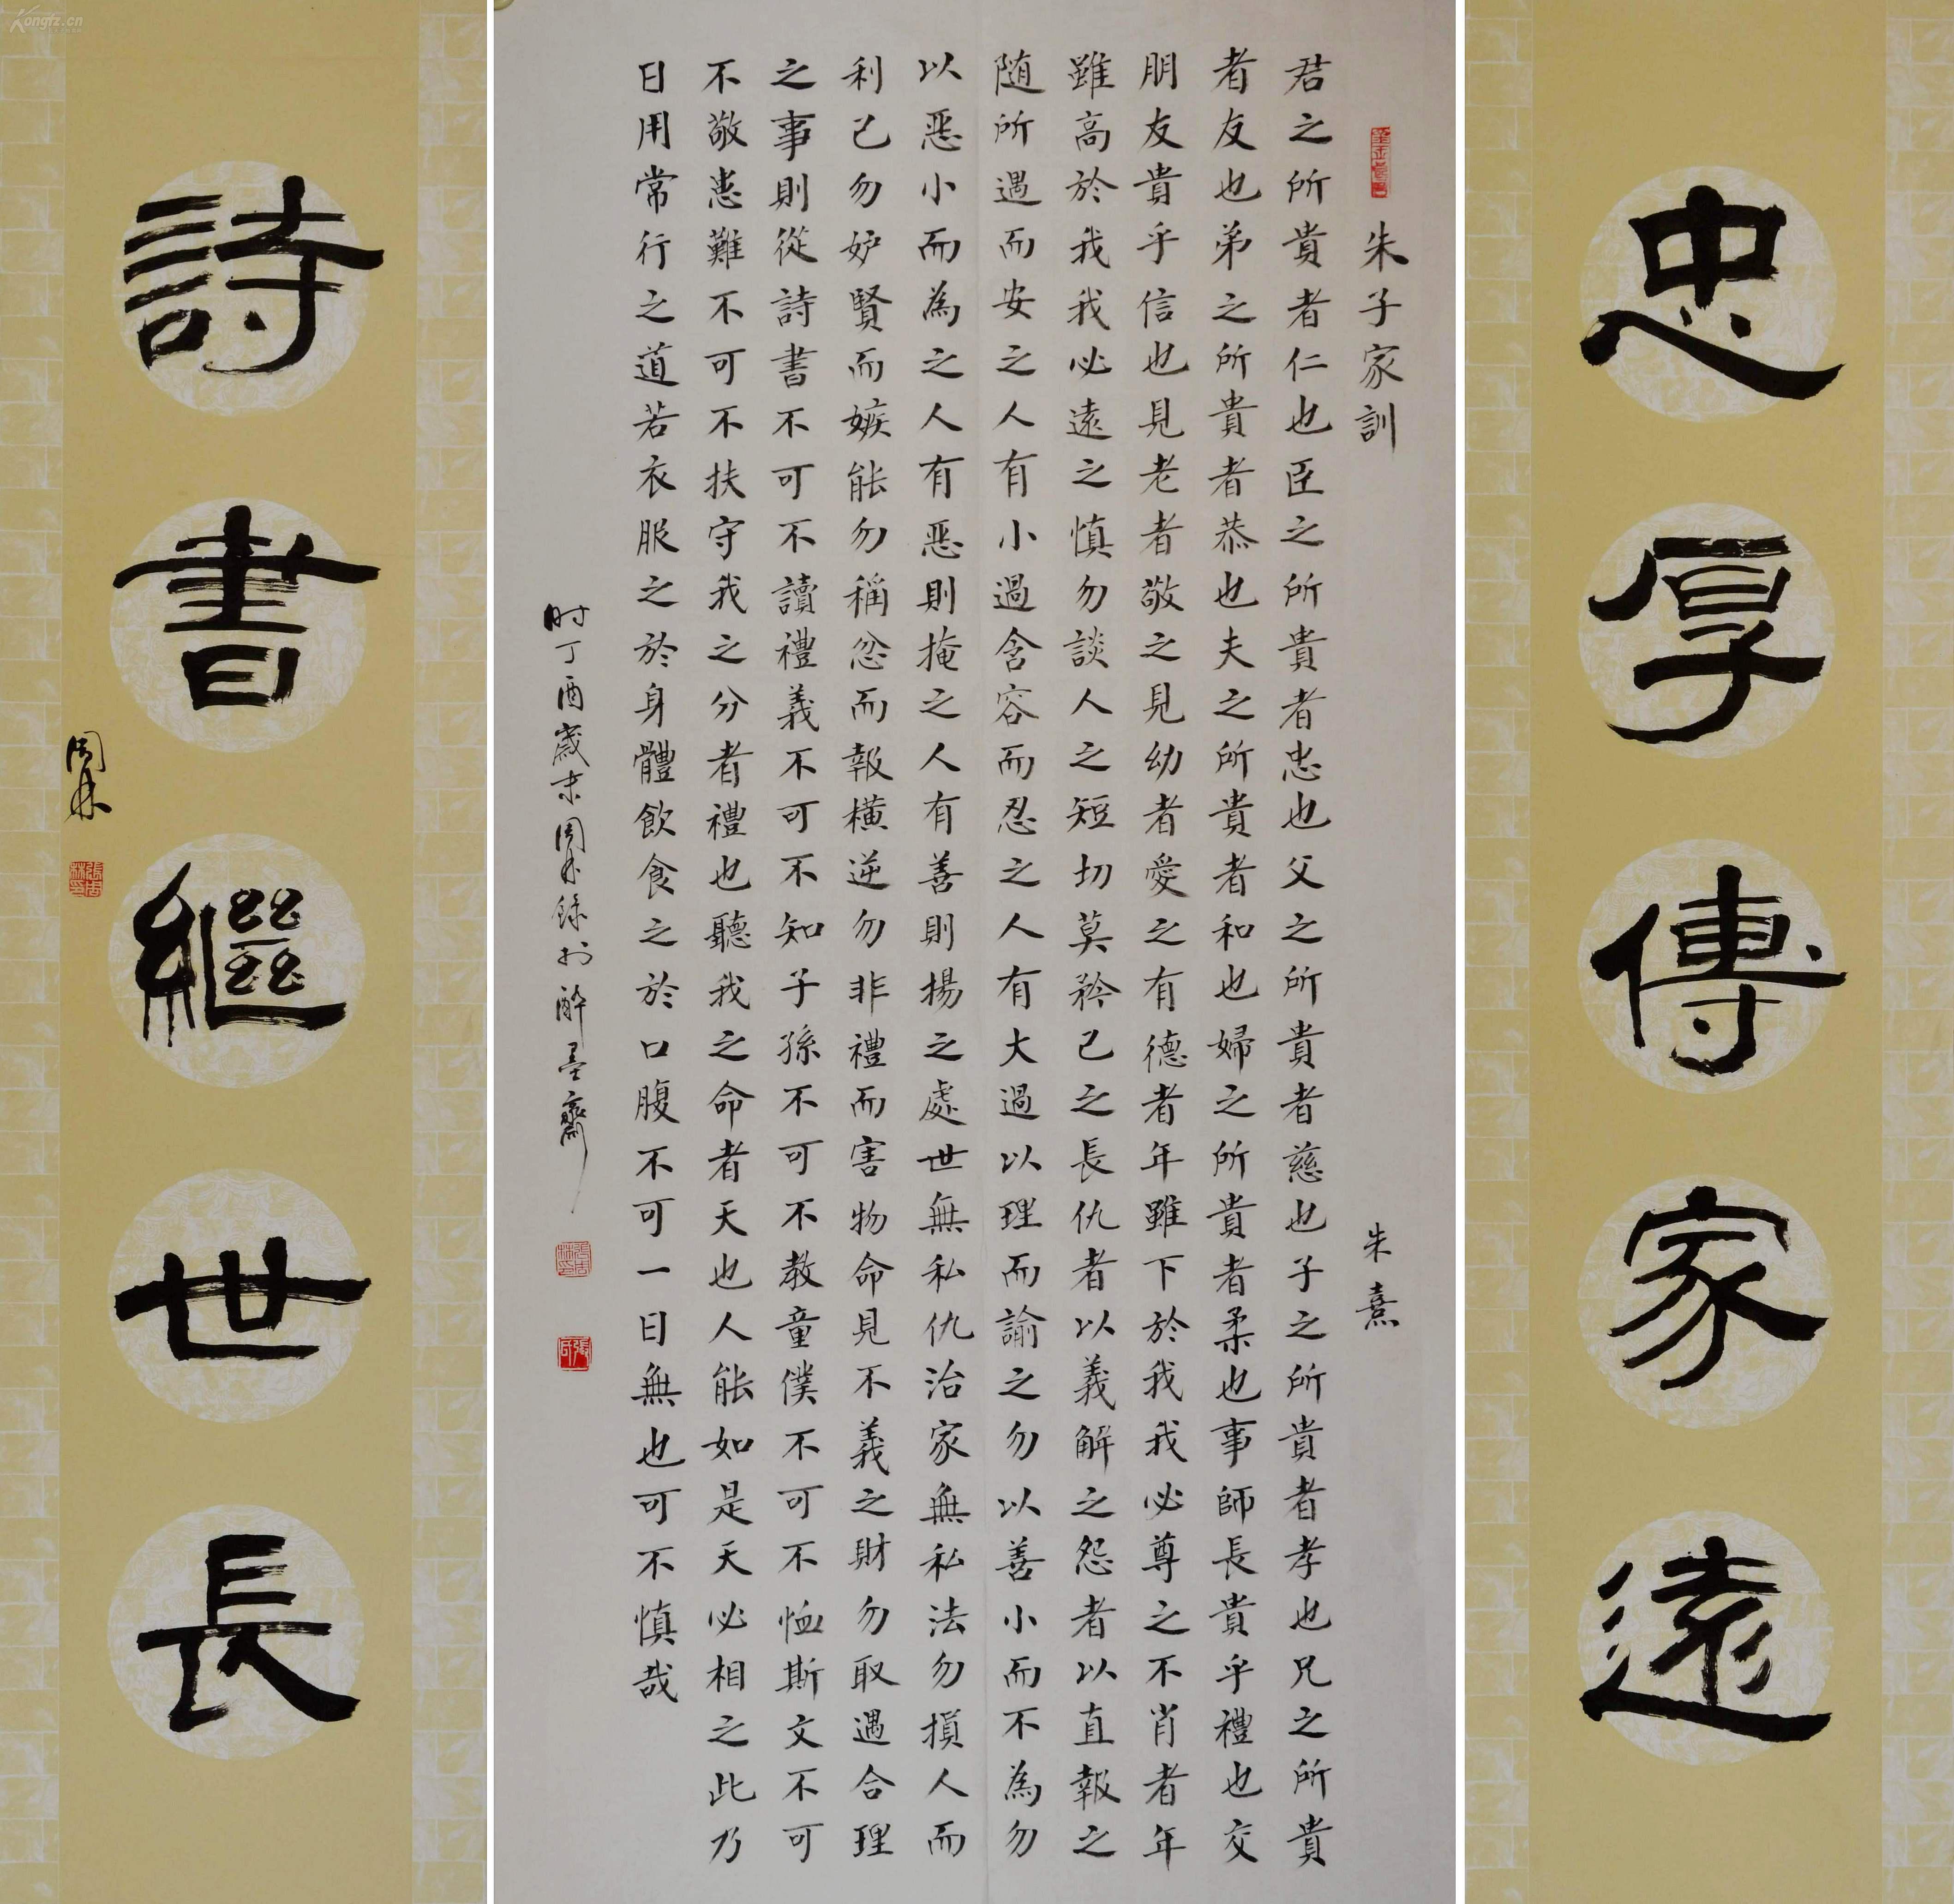 忠厚傳家遠
朱子家訓 朱熹
君之所貴者仁也臣之所貴者忠也父之所貴者慈也子之所貴者孝也兄之所貴
者友也弟之所貴者恭也夫之所貴者和也婦之所貴者柔也事師長貴乎禮也交
朋友貴乎信也見老者敬之見幼者愛之有德者年雖下於我我必尊之不肖者年
雖高於我我必遠之慎勿談人之短切莫矜己之長仇者以義解之怨者以直報之
随所遇而安之人有小過含容而忍之人有大過以理而諭之勿以善小而不為勿
以惡小而為之人有惡則掩之人有善則揚之處世無私仇治家無私法勿損人而
利己勿妒賢而嫉能勿稱忿而報橫逆勿非禮而害物命見不義之財勿取遇合理
之事則從詩書不可不讀禮義不可不知子孫不可不教童僕不可不恤斯文不可
不敬患難不可不扶守我之分者禮也聽我之命者天也人能如是天必相之此乃
日用常行之道若衣服之於身體飲食之於口腹不可一日無也可不慎哉
时丁酉歲末周林錄於醉墨齋
張周林印
詩書繼世長
周林
張周林印
Kongfz.cn